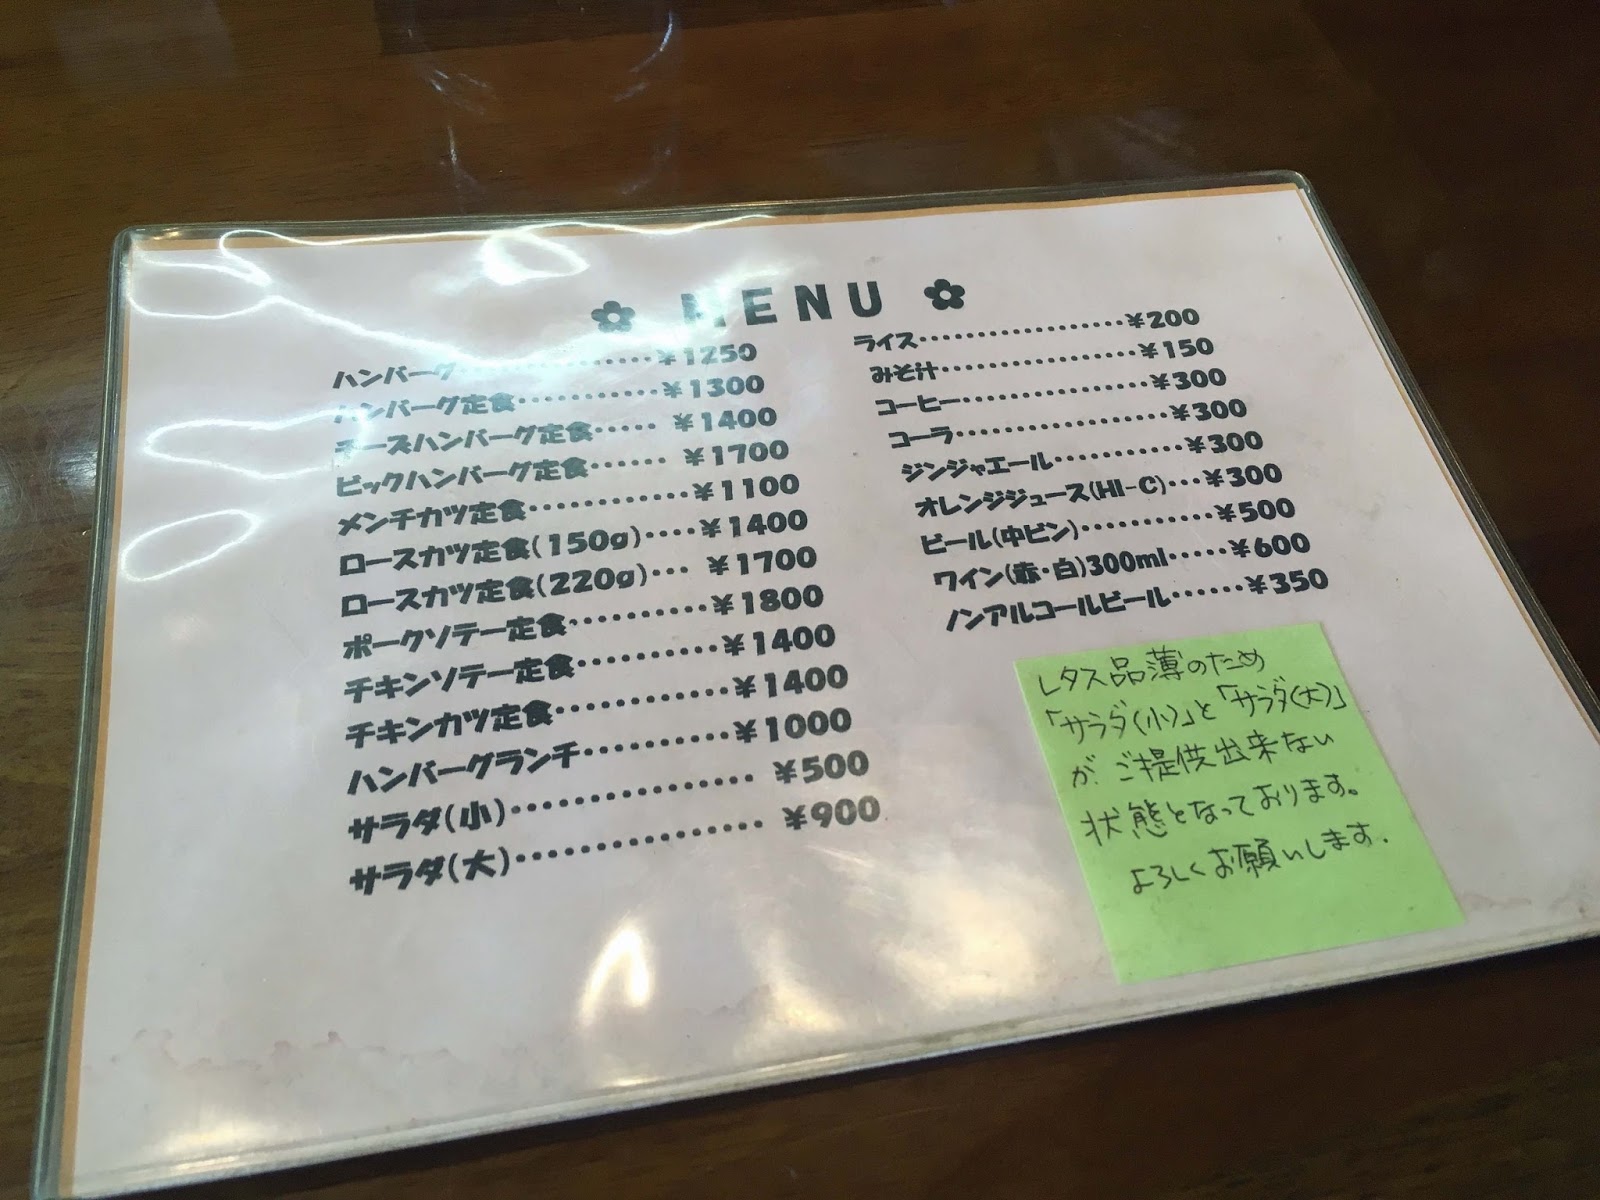 ✿ MENU ✿
ハンバーグ・・・・・・・・・・・・・・¥1250
ハンバーグ定食・・・・・・・・・・・¥1300
チーズハンバーグ定食・・・・・ ¥1400
ビックハンバーグ定食・・・・・・ ¥1700
メンチカツ定食・・・・・・・・・・・・¥1100
ロースカツ定食(150g)・・・・¥1400
ロースカツ定食(220g)・・・ ¥1700
ポークソテー定食・・・・・・・・・・¥1800
チキンソテー定食・・・・・・・・・・¥1400
チキンカツ定食・・・・・・・・・・・・¥1400
ハンバーグランチ・・・・・・・・・・¥1000
サラダ(小)・・・・・・・・・・・・・・・・ ¥500
サラダ(大)・・・・・・・・・・・・・・・・ ¥900
ライス・・・・・・・・・・・・・・・・・・¥200
みそ汁・・・・・・・・・・・・・・・・・¥150
コーヒー・・・・・・・・・・・・・・・・¥300
コーラ・・・・・・・・・・・・・・・・・・¥300
ジンジャエール・・・・・・・・・・・¥300
オレンジジュース(HI-C)・・・¥300
ビール(中ビン)・・・・・・・・・・・¥500
ワイン(赤・白)300ml・・・・・¥600
ノンアルコールビール・・・・・・¥350
レタス品薄のため
「サラダ(小)」と「サラダ(大)」
が、ご提供出来ない
状態となっております。
よろしくお願いします.